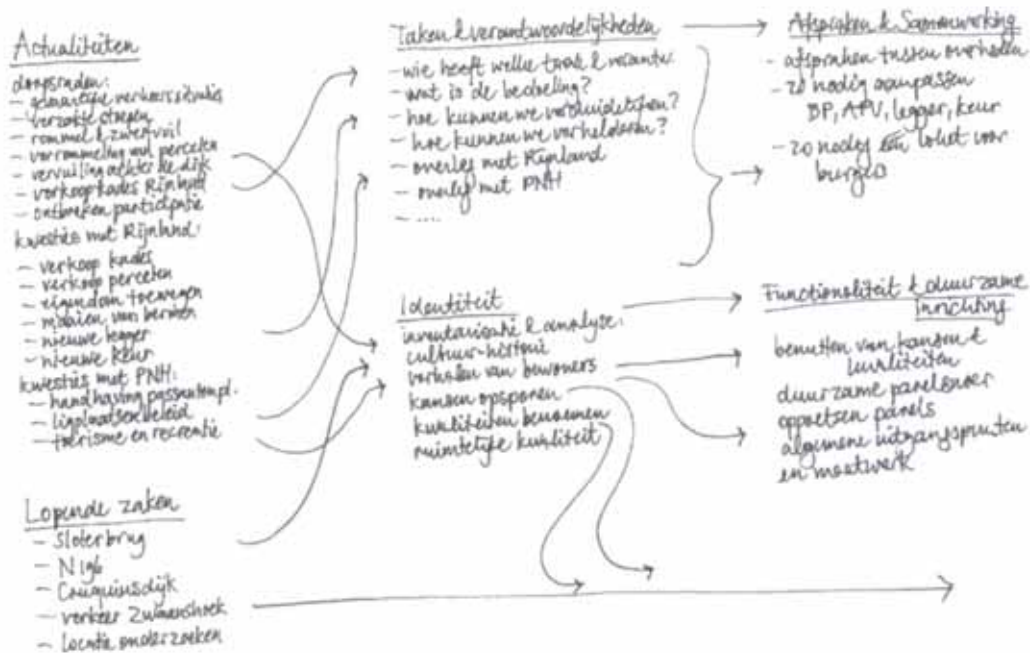 Actualiteiten
dorpsraden:
- gevaarlijke verkeerssituaties
- verzakte stoepen
- rommel & zwerfvuil
- verrommeling vml percelen
- vervuiling achter de dijk
- verkoop kades Rijnland
- ontbreken participatie
kwesties met Rijnland:
- verkoop kades
- verkoop percelen
- eigendom toewegen
- maaien van bermen
- nieuwe legger
- nieuwe keur
kwesties met PNH:
- handhaving
- ligplaatsenbeleid
- toerisme en recreatie
Lopende zaken
- Sloterbrug
- N196
- Cruquiusdijk
- verkeer Zwaanshoek
- locatie onderzoeken
Taken & verantwoordelijkheden
- wie heeft welke taak & verantw.
- wat is de bedoeling?
- hoe kunnen we verduidelijken?
- hoe kunnen we verhelderen?
- overleg met Rijnland
- overleg met PNH
- ....
Identiteit
inventarisatie & analyse:
cultuur-historie
verhalen van bewoners
kansen opsporen
kwaliteiten benoemen
ruimtelijke kwaliteit
Afspraken & Samenwerking
- afspraken tussen overheden
- zo nodig aanpassen
BP, APV, legger, keur
- zo nodig één loket voor
burgers
Functionaliteit & duurzame
inrichting
benutten van kansen &
kwaliteiten
duurzame
algemene uitgangspunten
en maatwerk